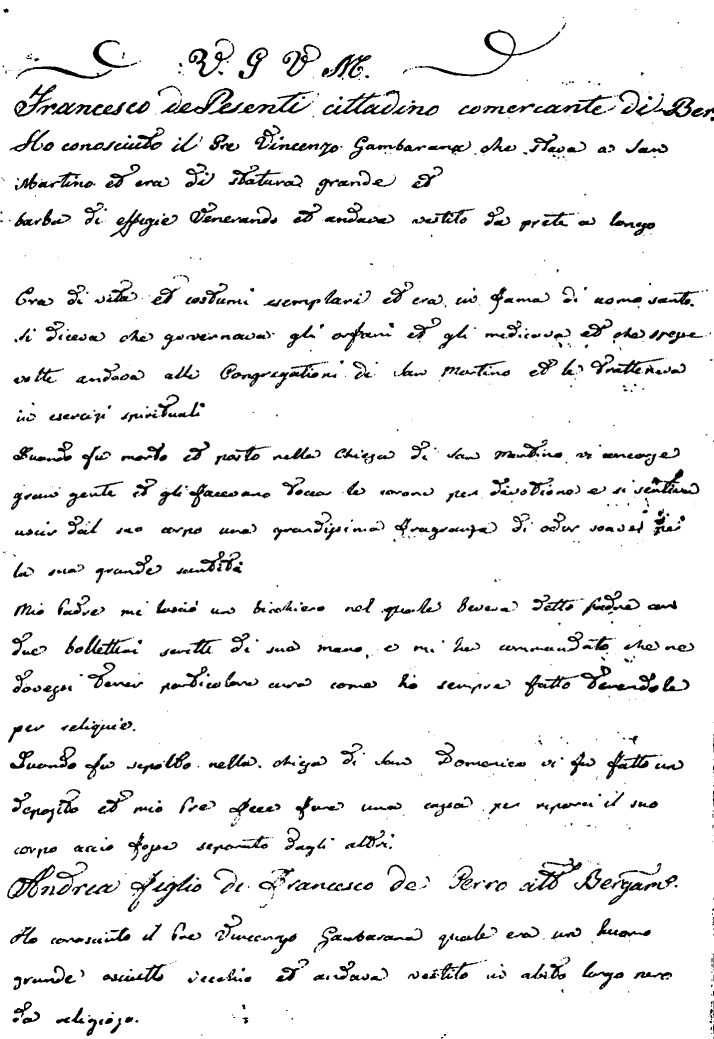 V. G V M.
Francesco de Pesenti cittadino comercante di Ber.
Ho conosciuto il Pre Vincenzo Gambarana che stava a San
Martino et era di statura grande et
barba di effigie Venerando et andava vestito da prete a longo
Era di vita et costumi esemplari et era in fama di uomo santo.
Si diceva che governava gli orfani et gli medicava et che spesse
volte andava alle Congregationi di San Martino et le tratteneva
in esercizi spirituali
Quando fu morto et posto nella Chieza di San Martino vi
gran gente et gli facevano tocca le corone per divotione e si sentiva
uscir dal suo corpo una grandissima fragranza di odor soave
la sua grande santità
Mio Padre mi lasciò un bicchiero nel quale beveva detto Padre con
due bollettini scritti di sua mano, e mi ha commandato che ne
dovessi tener particolare cura come ho sempre fatto tenendole
per reliquie.
Quando fu sepolto nella chieza di San Domenico vi fu fatto un
deposito et mio Pre fece fare una cassa per riporci il suo
corpo accio fosse separato dagli altri.
Andrea figlio di Francesco de Perro Bergam.
Ho conosciuto il Pre Vincenzo Gambarana quale era un huomo
grande asciutto vecchio et andava vestito in abito longo nero
da religiozo.